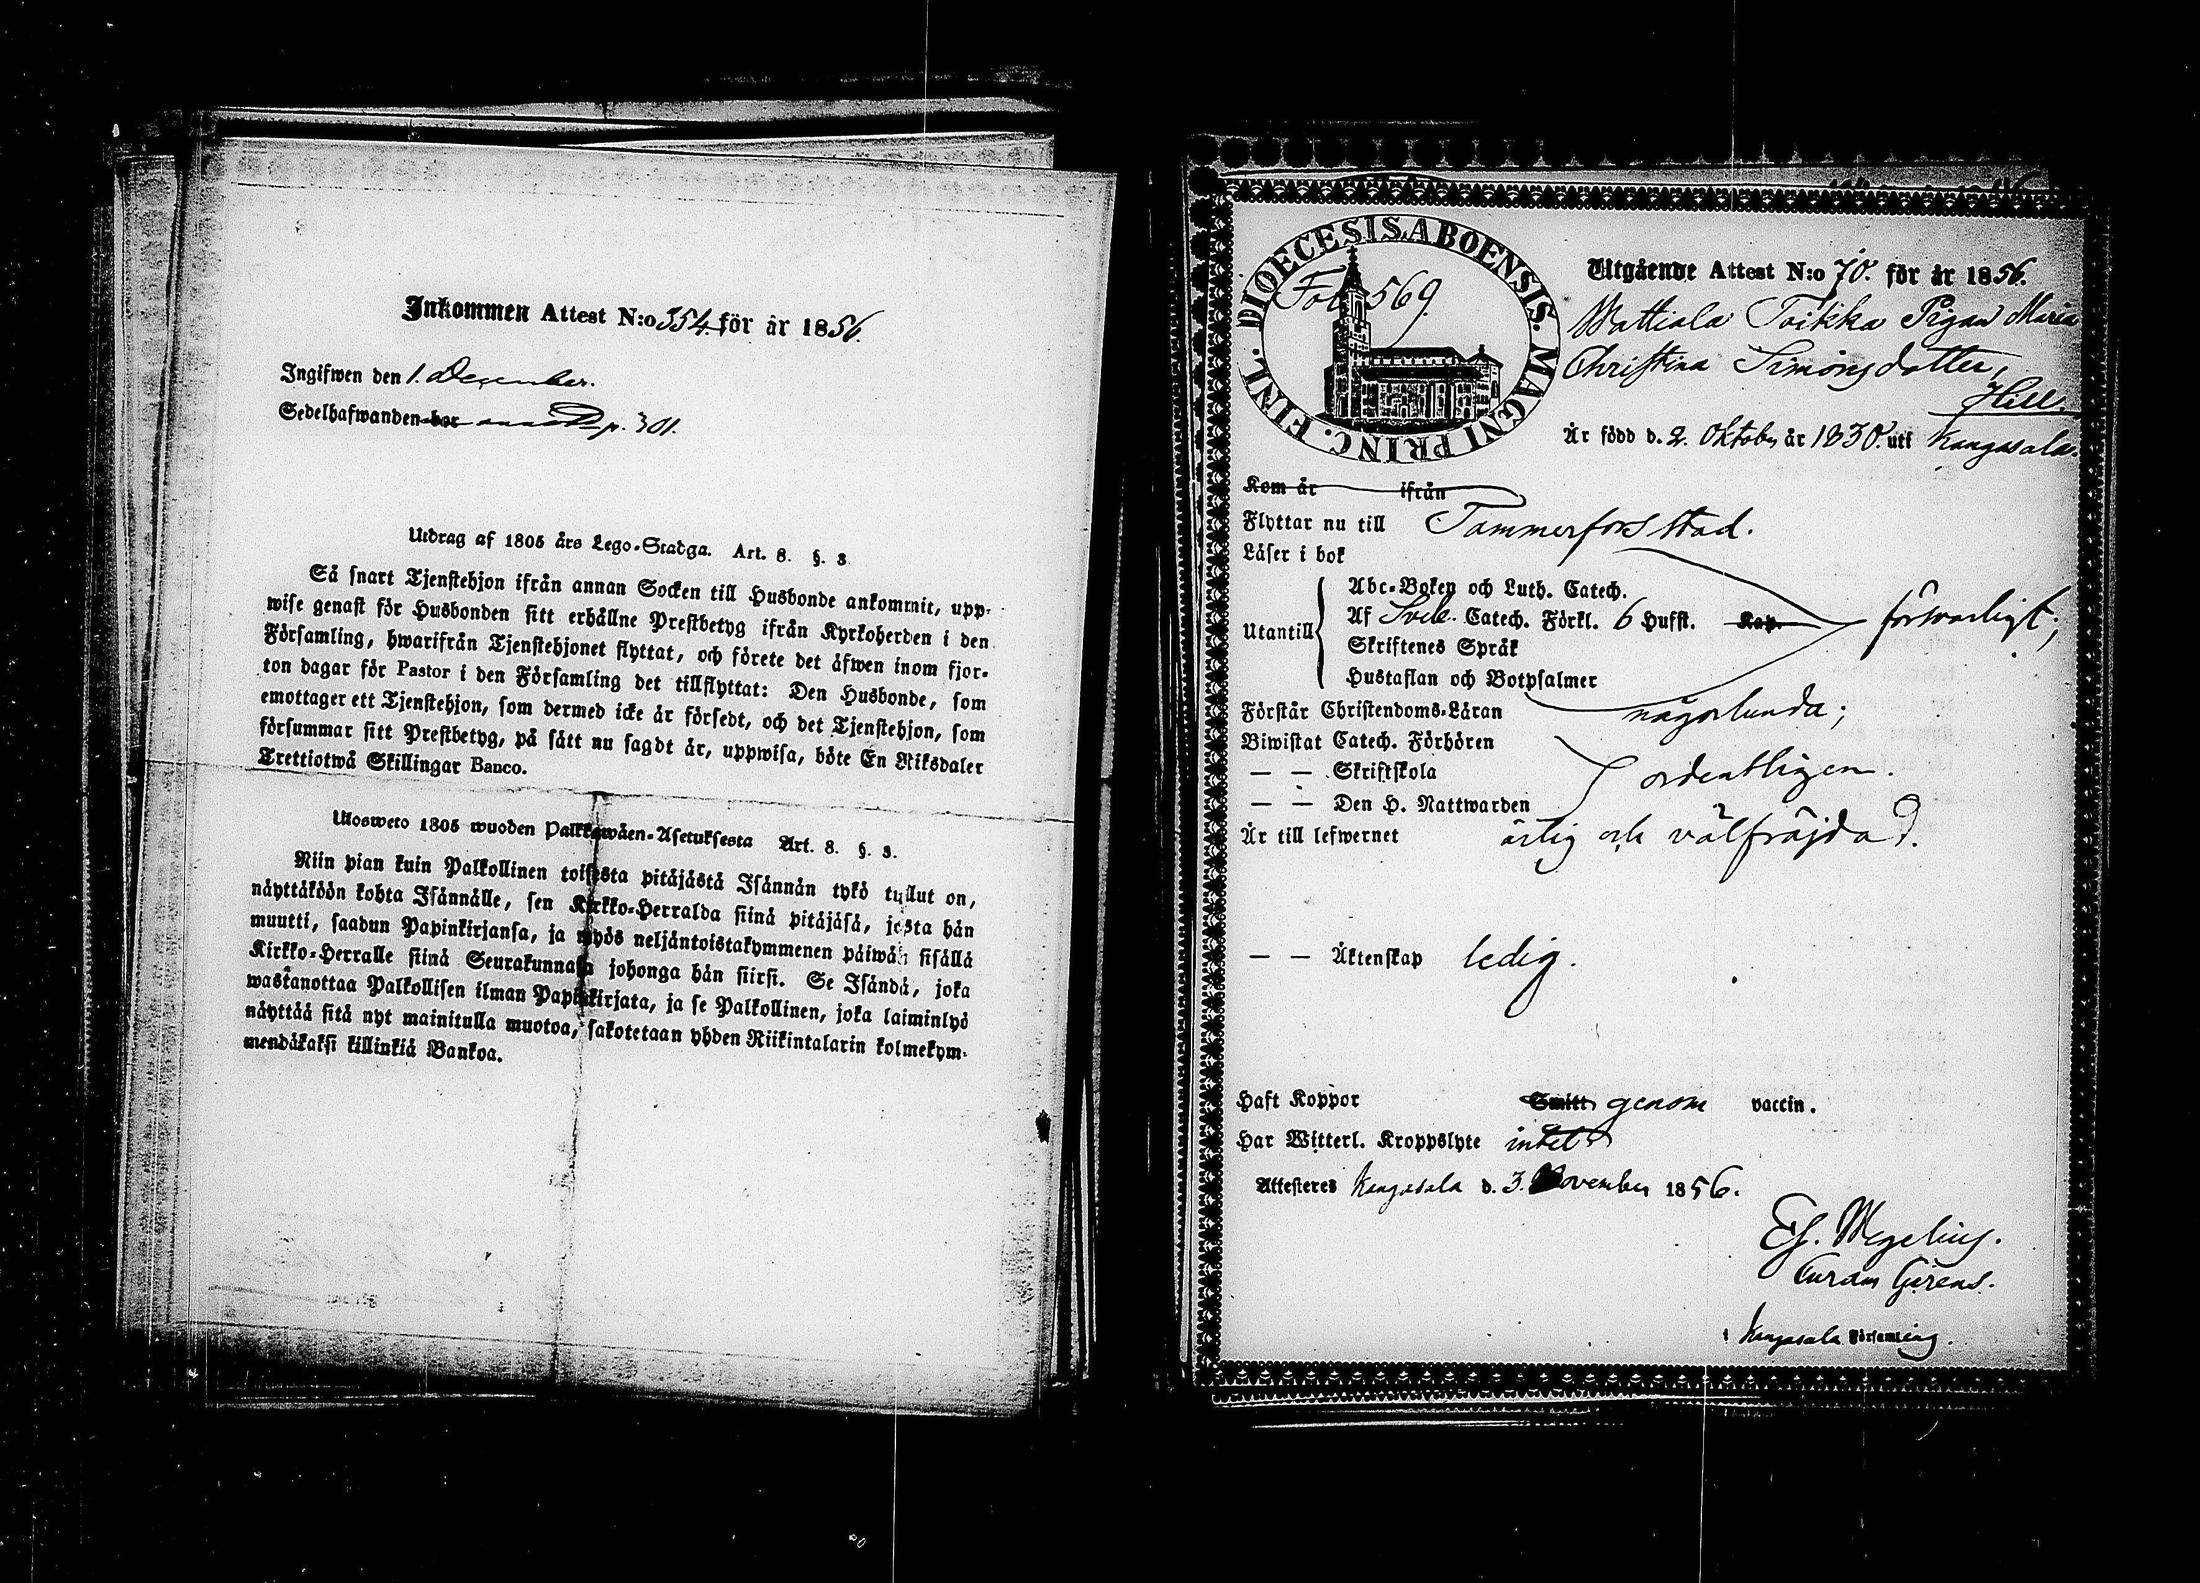 Inkommen Attest N:o 354 för år 1856.
Ingifwen den 1. December.
Sedelhafwanden bor p. 301.
Utdrag af 1805 års Lego-Stadga. Art. 8. §. 3.
Så snart Tjenstehjon ifrån annan Socken till Husbonde ankommit, upp-
wise genast för Husbonden sitt erhållne Prestbetyg ifrån Kyrkoherden i den
Församling, hwarifrån Tjenstehjonet flyttat, och förete det äfwen inom fjor-
ton dagar för Pastor i den Församling det tillflyttat: Den Husbonde, som
emottager ett Tjenstehjon, som dermed icke är försedt, och det Tjenstehjon, som
försummar sitt Prestbetyg, på sätt nu sagdt är, uppwisa, böte En Riksdaler
Trettiotwå Skillingar Banco.
Ulosweto 1805 wuoden Palkkawäen-Asetuksesta Art. 8. §. 3.
Niin pian kuin Palkollinen toisesta pitäjästä Isännän tykö tullut on,
näyttäköön kohta Isännälle, sen Kirkko-Herralda siinä pitäjäsä, josta hän
muutti, saadun Papinkirjansa, ja myös neljäntoistakymmenen päiwän sisällä
Kirkko-Herralle siinä Seurakunnasa johonga hän siirsi. Se Isändä, joka
wastanottaa Palkollisen ilman Papinkirjata, ja se Palkollinen, joka laiminlyö
näyttää sitä nyt mainitulla muotoa, sakotetaan yhden Riikintalarin kolmekym-
mendäkaksi killinkiä Bankoa.
DIOECESIS ABOENSIS. MAGNI PRINC. FINL.
Fol. 569.
Utgående Attest N:o 70. för år 1856.
Wattiala Toikka Pigan Maria
Christina Simonsdotter,
Hell.
Är född d. 2. Oktober år 1830. uti Kangasala.
Kom år ifrån
Flyttar nu till Tammerfors stad.
Läser i bok
Abc-Boken och Luth. Catech.
Utantill Af Sveb. Catech. Förkl. 6 Hufst. Kap. försvarligt;
Skriftenes Språk
Hustaflan och Botpsalmer
Förstår Christendoms-Läran någorlunda;
Biwistat Catech. Förhören
— — Skriftskola ordentligen.
— — Den H. Nattwarden
Är till lefwernet ärlig och välfräjdad.
— — Äktenskap ledig.
Haft Koppor Smitt genom vaccin.
Har Witterl. Kroppslyte intet
Attesteres Kangasala d. 3. November 1856.
Ef. Wegelius.
Curam Gerens.
i Kangasala Församling.